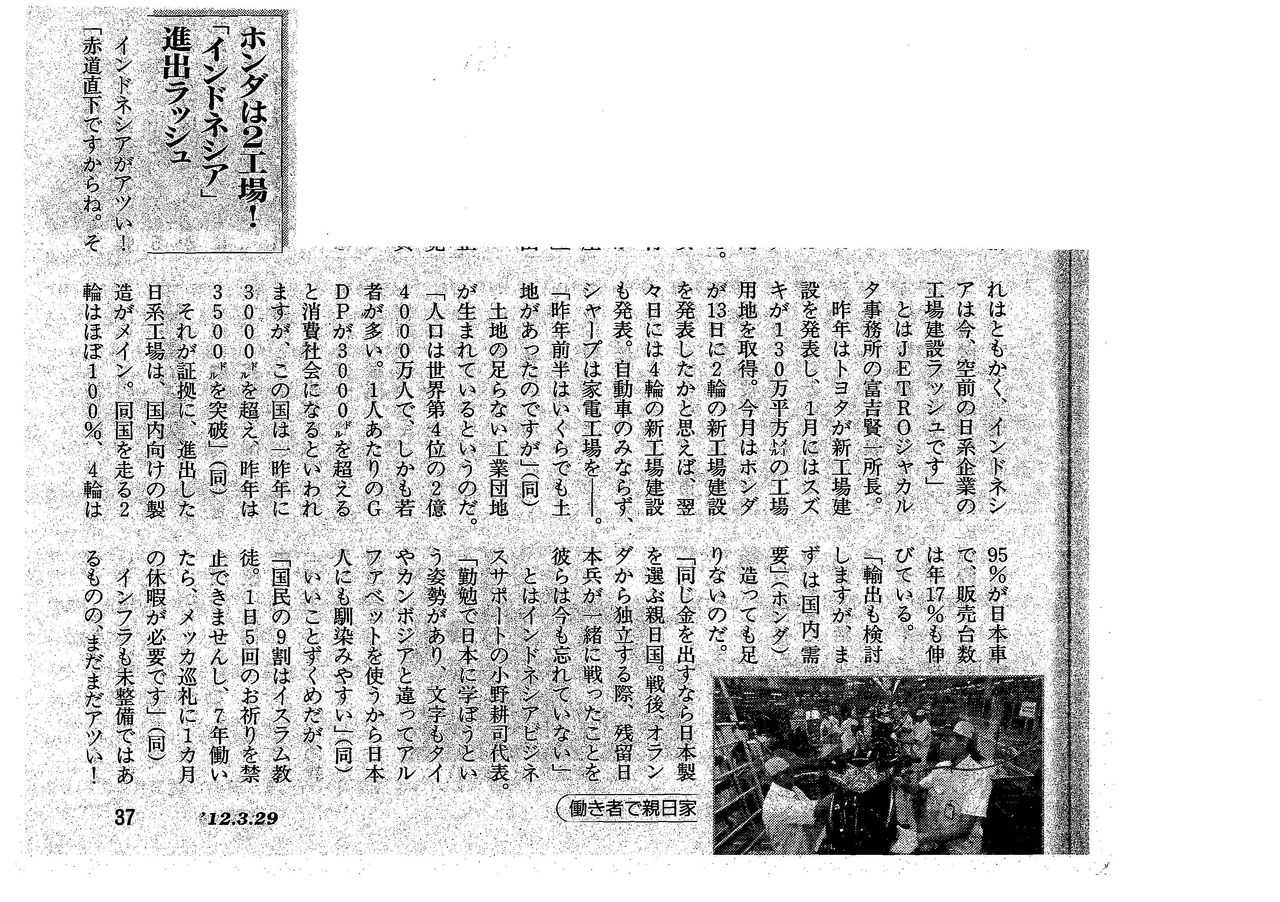 ホンダは2工場!
「インドネシア」
進出ラッシュ
インドネシアがアツい!
「赤道直下ですからね。そ
れはともかく、インドネシ
アは今、空前の日系企業の
工場建設ラッシュです」
とはJETROジャカル
タ事務所の富吉賢一所長。
昨年はトヨタが新工場建
設を発表し、1月にはスズ
キが130万平方㍍の工場
用地を取得。今月はホンダ
が13日に2輪の新工場建設
を発表したかと思えば、翌
々日には4輪の新工場建設
も発表。自動車のみならず、
シャープは家電工場を――。
「昨年前半はいくらでも土
地があったのですが」(同)
土地の足らない工業団地
が生まれているというのだ。
「人口は世界第4位の2億
4000万人で、しかも若
者が多い。1人あたりのG
DPが3000㌦を超える
と消費社会になるといわれ
ますが、この国は一昨年に
3000㌦を超え、昨年は
3500㌦を突破」(同)
それが証拠に、進出した
日系工場は、国内向けの製
造がメイン。同国を走る2
輪はほぼ100%、4輪は
95%が日本車
で、販売台数
は年17%も伸
びている。
「輸出も検討
しますが、ま
ずは国内需
要」(ホンダ)
造っても足
りないのだ。
「同じ金を出すなら日本製
を選ぶ親日国。戦後、オラン
ダから独立する際、残留日
本兵が一緒に戦ったことを
彼らは今も忘れていない」
とはインドネシアビジネ
スサポートの小野耕司代表。
「勤勉で日本に学ぼうとい
う姿勢があり、文字もタイ
やカンボジアと違ってアル
ファベットを使うから日本
人にも馴染みやすい」(同)
いいことずくめだが、
「国民の9割はイスラム教
徒。1日5回のお祈りを禁
止できませんし、7年働い
たら、メッカ巡礼に1カ月
の休暇が必要です」(同)
インフラも未整備ではあ
るものの、まだまだアツい!
働き者で親日家
'12.3.29
37